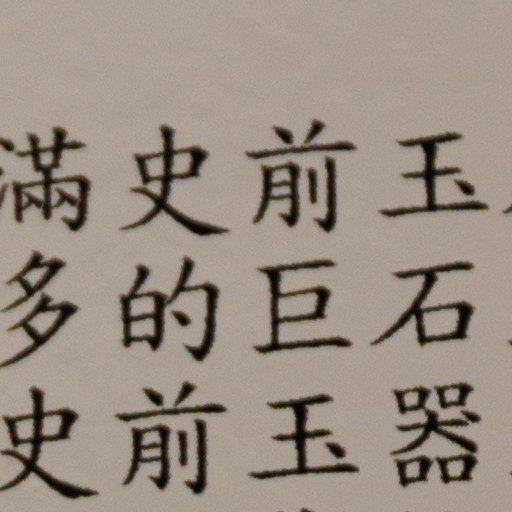 滿史前玉
多的巨石
史前玉器